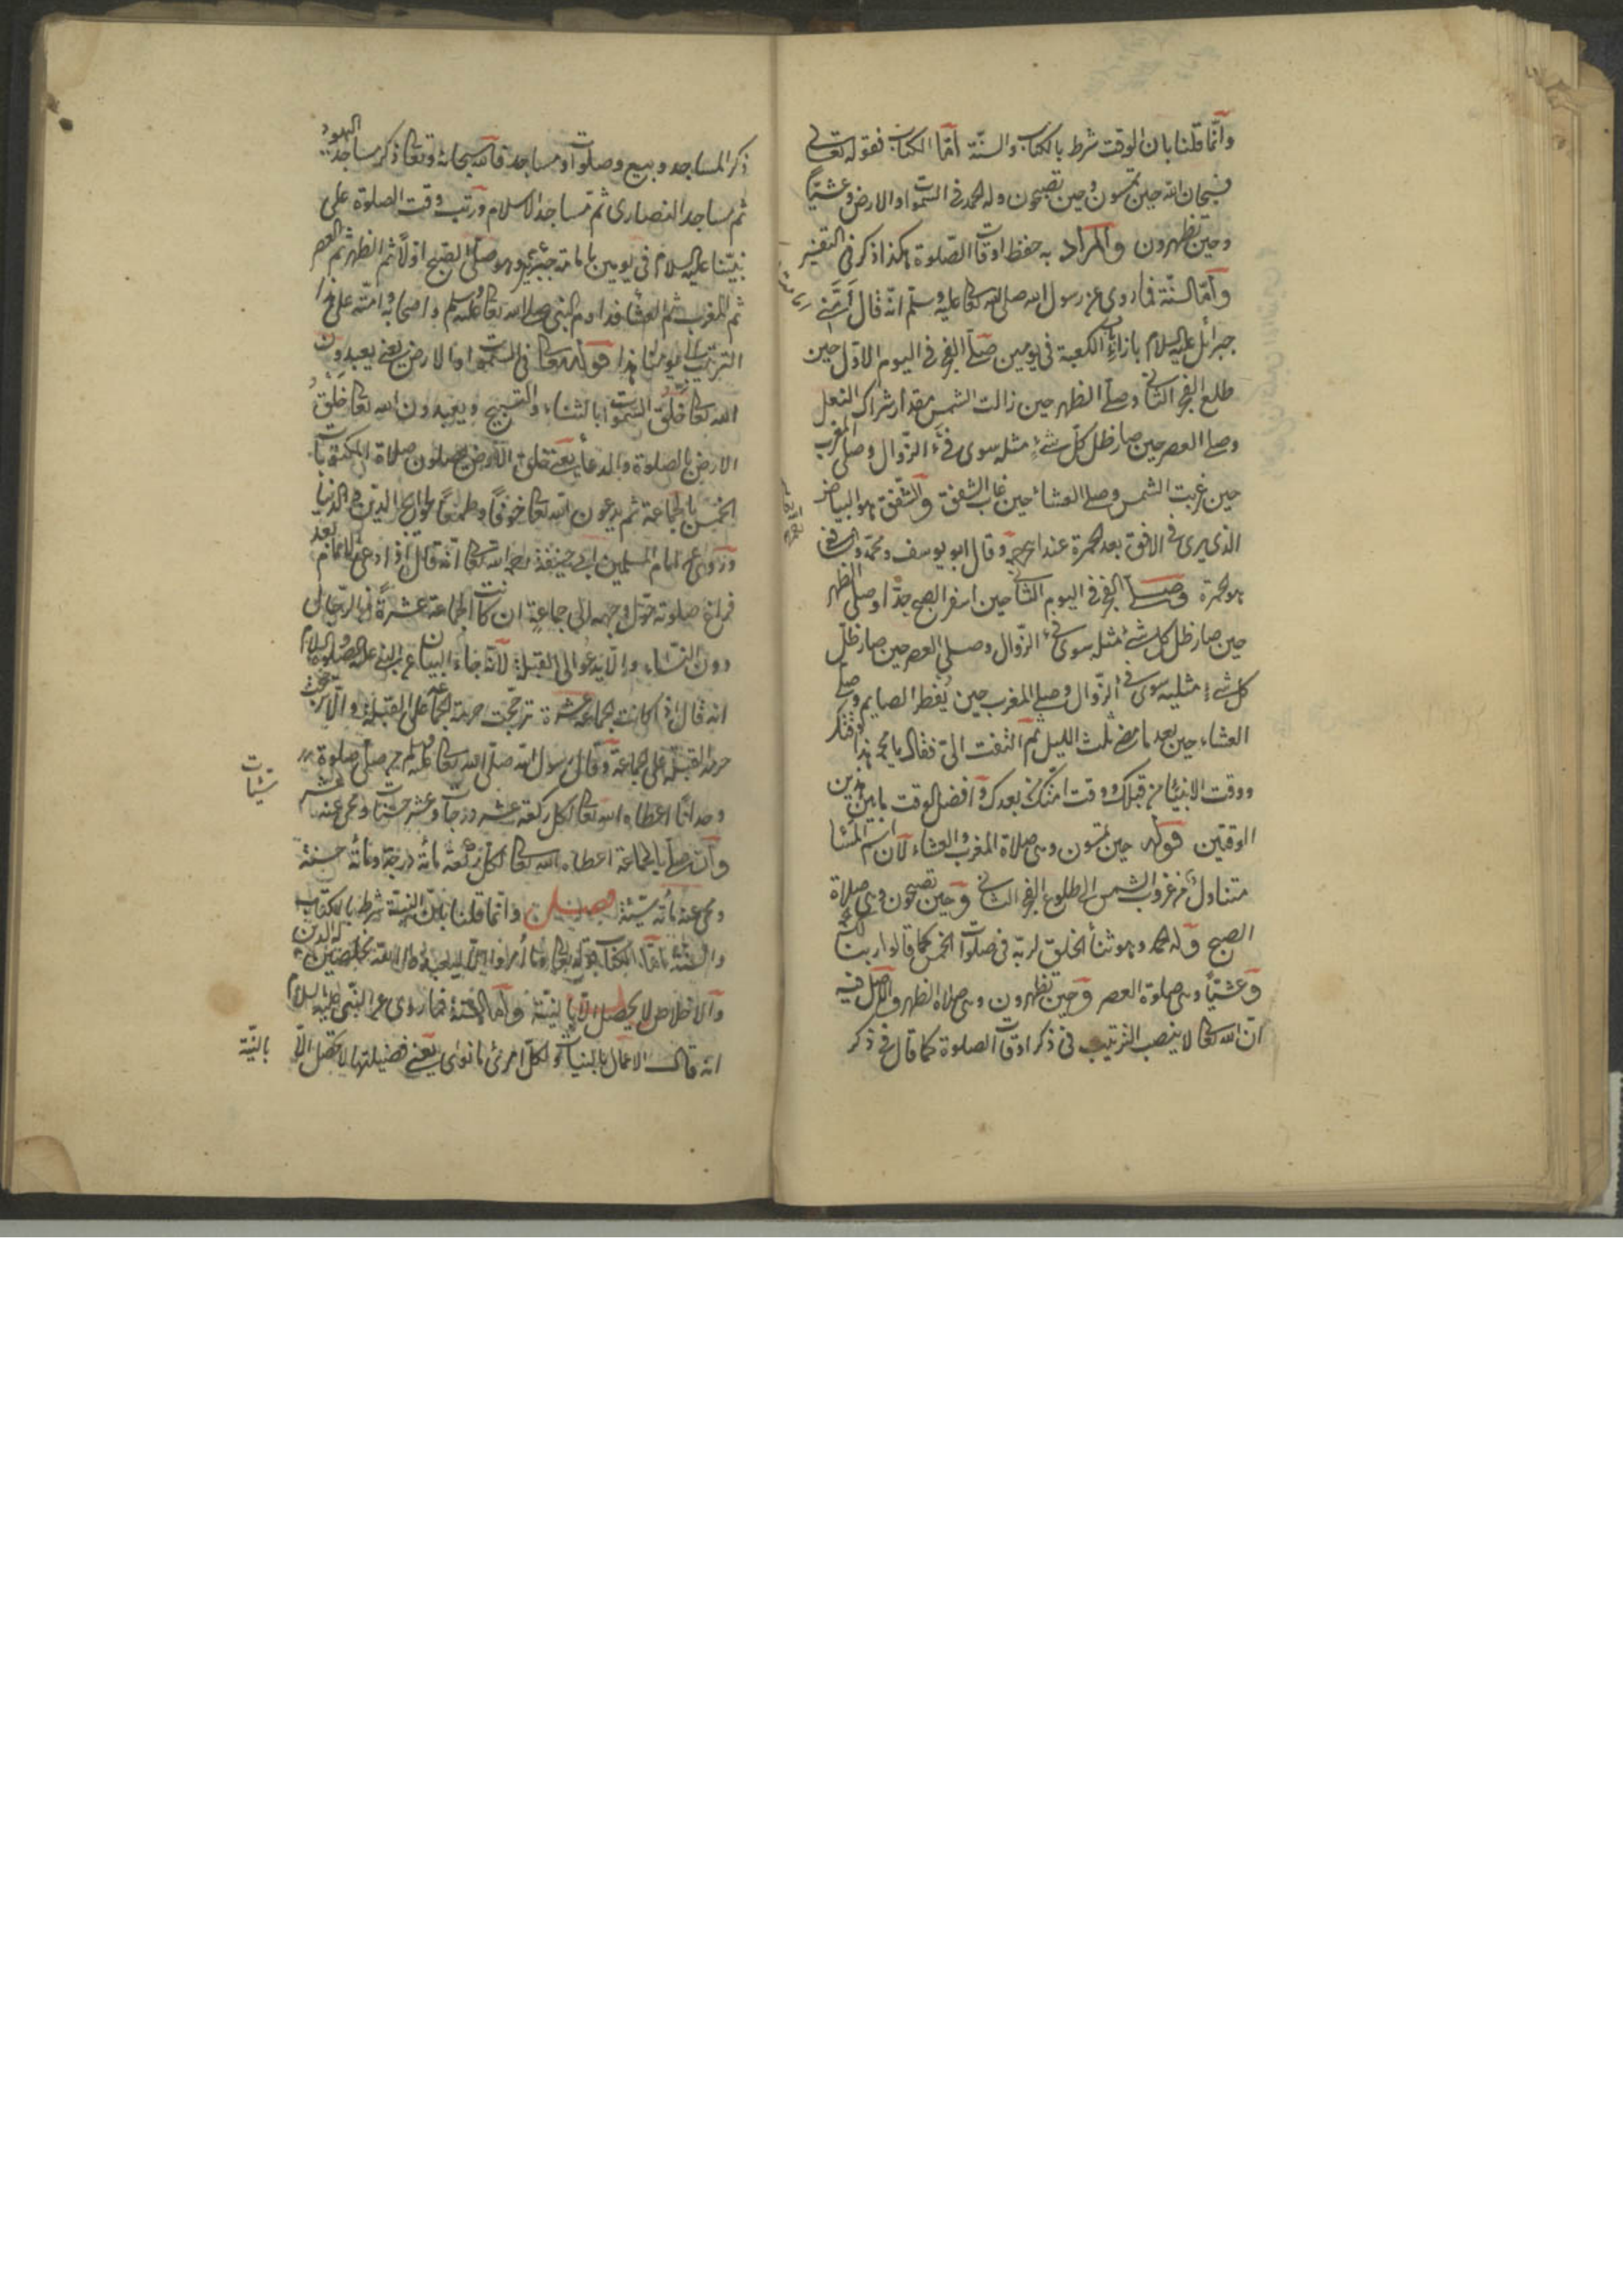 وانّما قلنا بان الوقت شرط بالكتاب والسنّة امّا الكتاب فقوله تعالى
فسبحان الله حين تمسون وحين تصبحون وله الحمد فى السموات والارض وعشيّاً
وحين تظهرون والمراد به حفظ اوقات الصّلوة هكذا ذكر فى التفسير
وامّا السنّة فما روى عن رسول الله صلى الله تعا عليه وسلّم انّه قال اَمَّنِى
جبرائل عليه السلام بازاء الكعبة فى يومين صلّى الفجر فى اليوم الاوّل حين
طلع الفجر الثانى وصلّى الظهر حين زالت الشمس مقدار شراك النعل
وصلى العصر حين صار ظل كلّ شئ مثله سوى فئ الزّوال وصلى المغرب
حين غربت الشمس وصلى العشاء حين غاب الشفق والشّفق هو البياض
الذى يرى فى الافق بعد الحمرة عند ابى وقال ابو يوسف ومحمّد والشافعى
هو الحمرة وصلى الفجر فى اليوم الثانى حين اسفر الصبح جدّا وصلى الظهر
حين صار ظل كل شئ مثله سوى فئ الزّوال وصلى العصر حين صار ظلّ
كل شئ مثليه سوى فئ الزّوال وصلى المغرب حين يُفطر الصايم وصلى
العشاء حين بعد ما مضى ثلث الليل ثم التفت الىّ فقال يا محمد هذا وقتك
ووقت الانبياء من قبلك ووقت امّتك من بعدك وافضل الوقت ما بين هذين
الوقتين قوله حين تمسون وهى صلاة المغرب والعشاء لان اسم المسا
متناول من غروب الشمس الى طلوع الفجر الثانى وحين تصبحون وهى صلاة
الصبح وله الحمد وهو ثنأ الخلق لربّه فى صلوات الخمس كما قالوا ربنا لك الحمد
وعشيّاً وهى صلوة العصر وحين تظهرون وهى صلاة الظهر والاصل فيه
انّ الله تعا لا ينصب الترتيب فى ذكر اوقات الصلوة كما قال فى ذكر
ذكر المساجد وبيع وصلوات ومساجد فالله سبحانه وتعا ذكر مساجد اليهود
ثم مساجد النصارى ثم مساجد الاسلام ورتب وقت الصلوة على
نبيّنا عليه السلام فى يومين بامامة جبرئيل وهو صلى الصبح اوّلاً ثم الظهر ثم العصر
ثم المغرب ثم العشا فداوم النبى صلى الله تعا عليه وسلم واصحابه وامّته على هذا
الترتيب الى يومنا هذا قوله تعا فى السموات والارض يعنى يعبدون
الله تعا خلق السموات بالثناء والتسبيح ويعبدون الله تعا خلق
الارض بالصلوة والدعاء يعنى خلق الارض يصلون صلاة المكتوبات
الخمس بالجماعة ثم يدعون الله تعا خوفًا وطمعًا لحوائج الدّين والدنيا
وروى عن امام المسلمين ابى حنيفة رحمه الله تعا انه قال اذا دعى الامام بعد
فراغ صلوته حوّل وجهه الى جماعةٍ ان كانت الجماعة عشرةً من الرّجال
دون النساء والّا يدعو الى القبلة لانّه جاء البيان عن النبى عليه الصلوة والسلام
انه قال اذا كانت الجماعة عشرة ترجّحت حرمة الجماعة على القبلة والّا ترجّحت
حرمة القبلة على الجماعة وقال رسول الله صلّى الله تعا عليه وسلم من صلّى صلوة
وحدانًا اعطاه الله تعا لكل ركعة عشر درجات وعشر حسنات ومحى عنه عشر
سيّئات
وان صلّى بالجماعة اعطاه الله تعا لكلّ ركعة مأئة درجة ومأئة حسنة
ومحى عنه مأئة سيّئة فصل وانّما قلنا بانّ النيّة شرط بالكتاب
والسنّة امّا الكتاب قوله تعا وما أُمروا الّا ليعبدوا الله مخلصين له الدين
والاخلاص لا يحصل الّا بالنيّة وامّا السّنّة فما روى عن النّبى عليه السلام
انه قال الاعمال بالنيات ولكلّ امرئ ما نوى يعنى فضيلتها لا تحصل الّا
بالنيّة